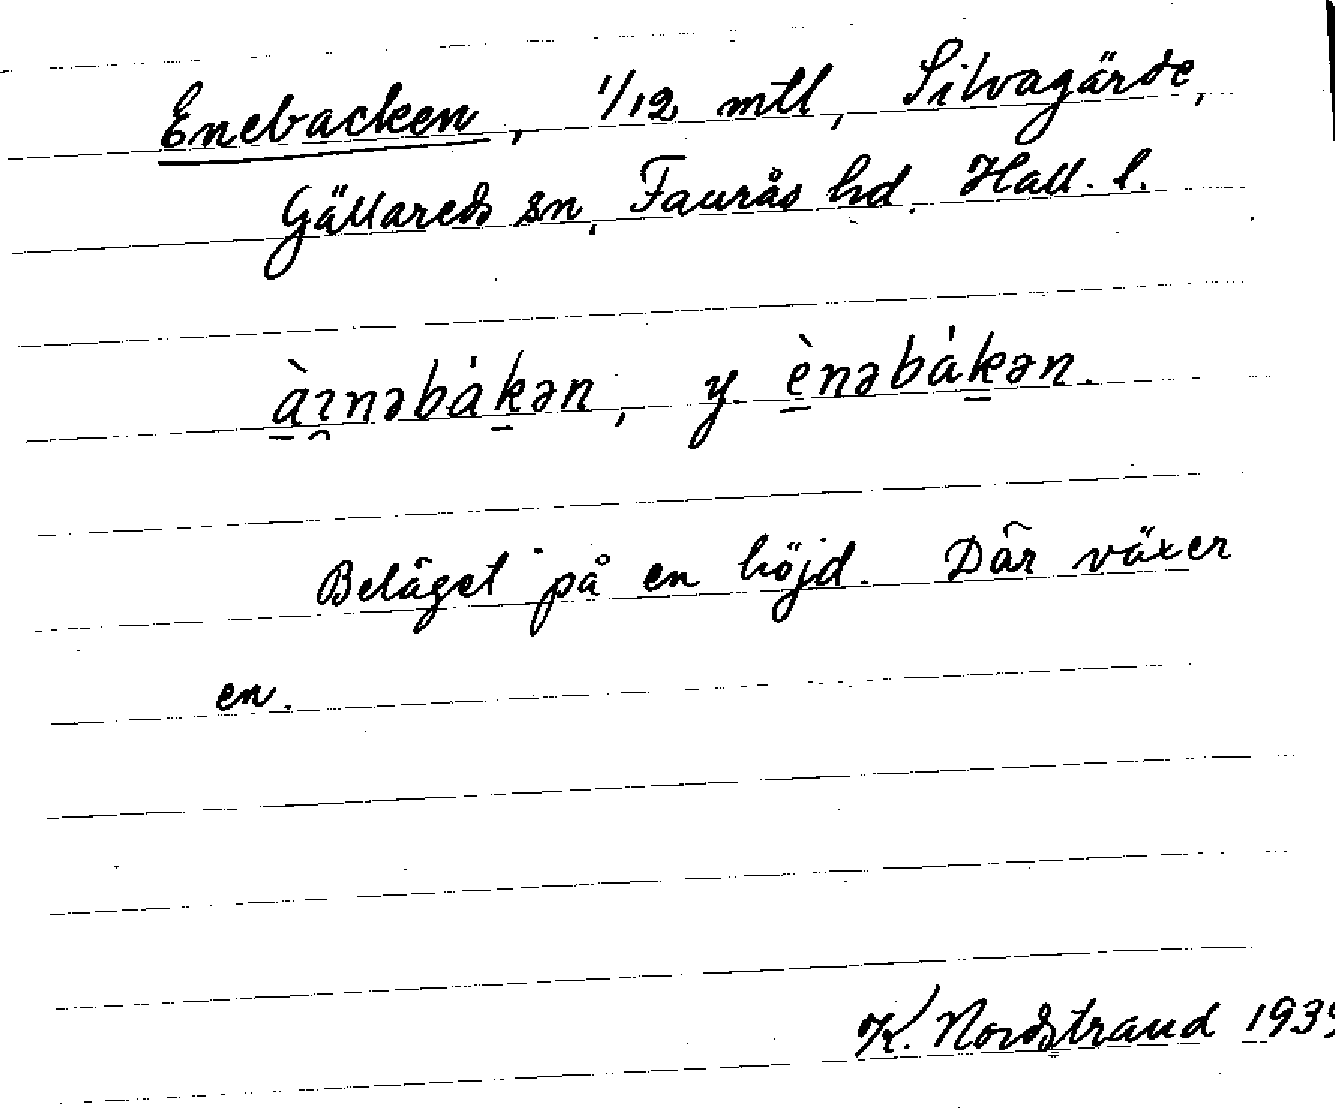 Enebacken, 1/12 mtl, Silvagärde,
Gällareds sn, Faurås hd. Hall. l.
à̱ı̯nəbák̠ən, y. è̱nəbák̠ən.
Beläget på en höjd. Där växer
en.
K. Nordstrand